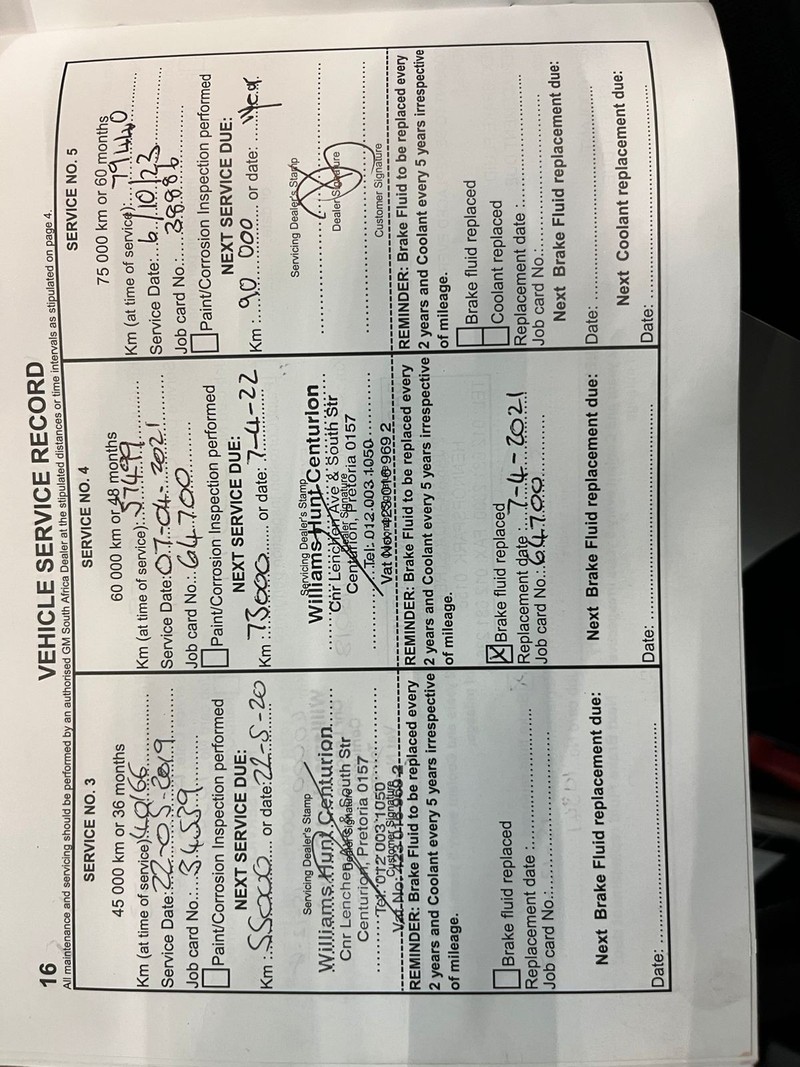 16
VEHICLE SERVICE RECORD
All maintenance and servicing should be performed by an authorised GM South Africa Dealer at the stipulated distances or time intervals as stipulated on page 4.
SERVICE NO. 3
45 000 km or 36 months
Km (at time of service) 40166
Service Date: 22-05-2019
Job card No.: 34539
Paint/Corrosion Inspection performed
NEXT SERVICE DUE:
Km : 55000 or date: 22-5-20
Servicing Dealer's Stamp
Williams Hunt Centurion
Cnr Lenchen Ave & South Str
Dealer Signature
Centurion, Pretoria 0157
Tel: 012 003 1050
Customer Signature
Vat No: 423 016 969 2
REMINDER: Brake Fluid to be replaced every
2 years and Coolant every 5 years irrespective
of mileage.
Brake fluid replaced
Replacement date :
Job card No.:
Next Brake Fluid replacement due:
Date:
SERVICE NO. 4
60 000 km or 48 months
Km (at time of service): 57499
Service Date: 07-04-2021
Job card No.: 64700
Paint/Corrosion Inspection performed
NEXT SERVICE DUE:
Km : 73000 or date: 7-4-22
Servicing Dealer's Stamp
Williams Hunt Centurion
Cnr Lenchen Ave & South Str
Dealer Signature
Centurion, Pretoria 0157
Tel: 012 003 1050
Vat No: 423 016 969 2
REMINDER: Brake Fluid to be replaced every
2 years and Coolant every 5 years irrespective
of mileage.
X Brake fluid replaced
Replacement date : 7-4-2021
Job card No.: 64700
Next Brake Fluid replacement due:
Date:
SERVICE NO. 5
75 000 km or 60 months
Km (at time of service) 79440
Service Date: 6/10/23
Job card No.: 38886
Paint/Corrosion Inspection performed
NEXT SERVICE DUE:
Km : 90 000 or date: year
Servicing Dealer's Stamp
Dealer Signature
Customer Signature
REMINDER: Brake Fluid to be replaced every
2 years and Coolant every 5 years irrespective
of mileage.
Brake fluid replaced
Coolant replaced
Replacement date :
Job card No.:
Next Brake Fluid replacement due:
Date:
Next Coolant replacement due:
Date: